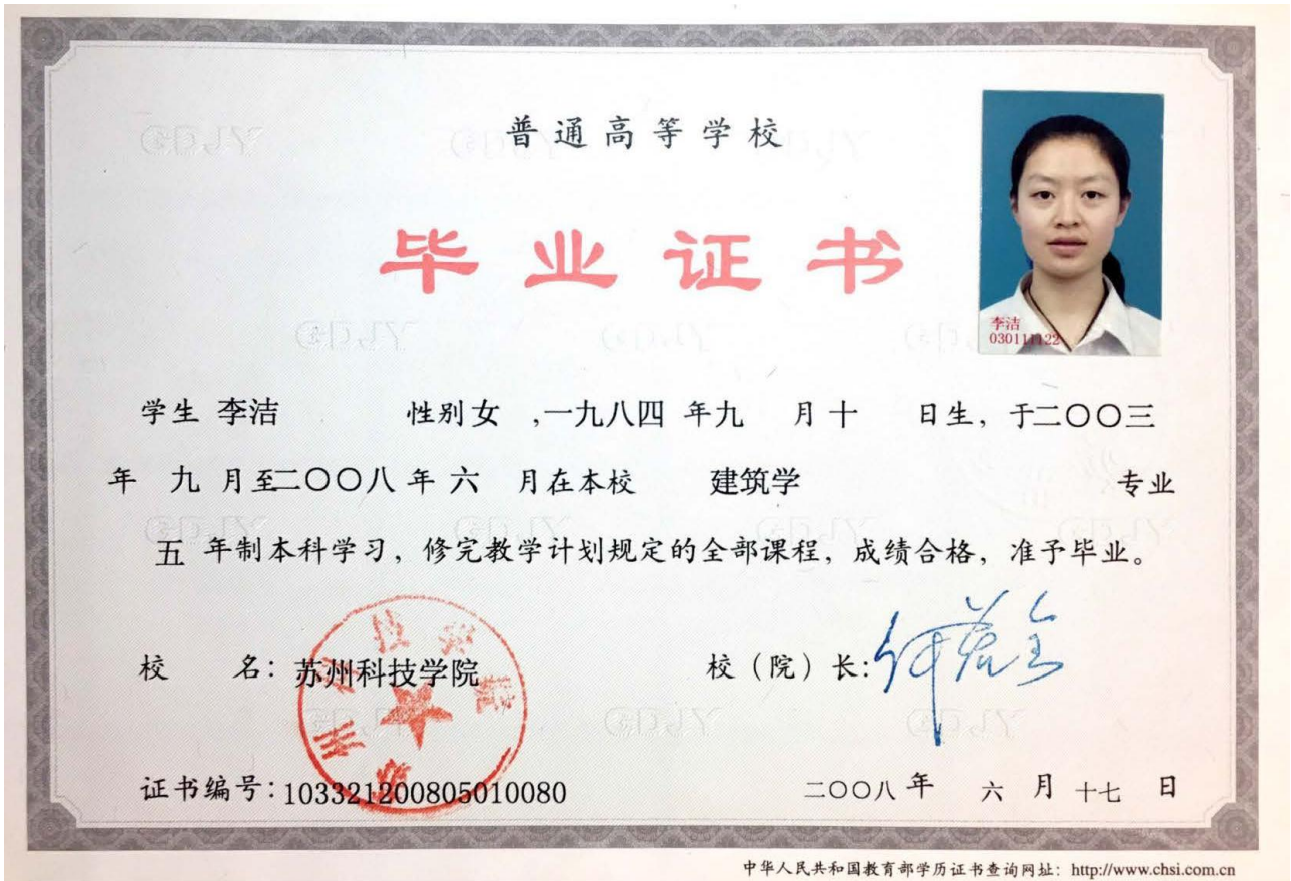 普通高等学校
毕业证书
李洁
030111122
学生 李洁 性别 女 ,一九八四 年九 月十 日生, 于二〇〇三
年 九 月至二〇〇八 年 六 月在本校 建筑学 专业
五 年制本科学习, 修完教学计划规定的全部课程, 成绩合格, 准予毕业。
校 名: 苏州科技学院 校（院）长:
苏州科技学院
证书编号: 103321200805010080 二〇〇八 年 六 月 十七 日
中华人民共和国教育部学历证书查询网址: http://www.chsi.com.cn